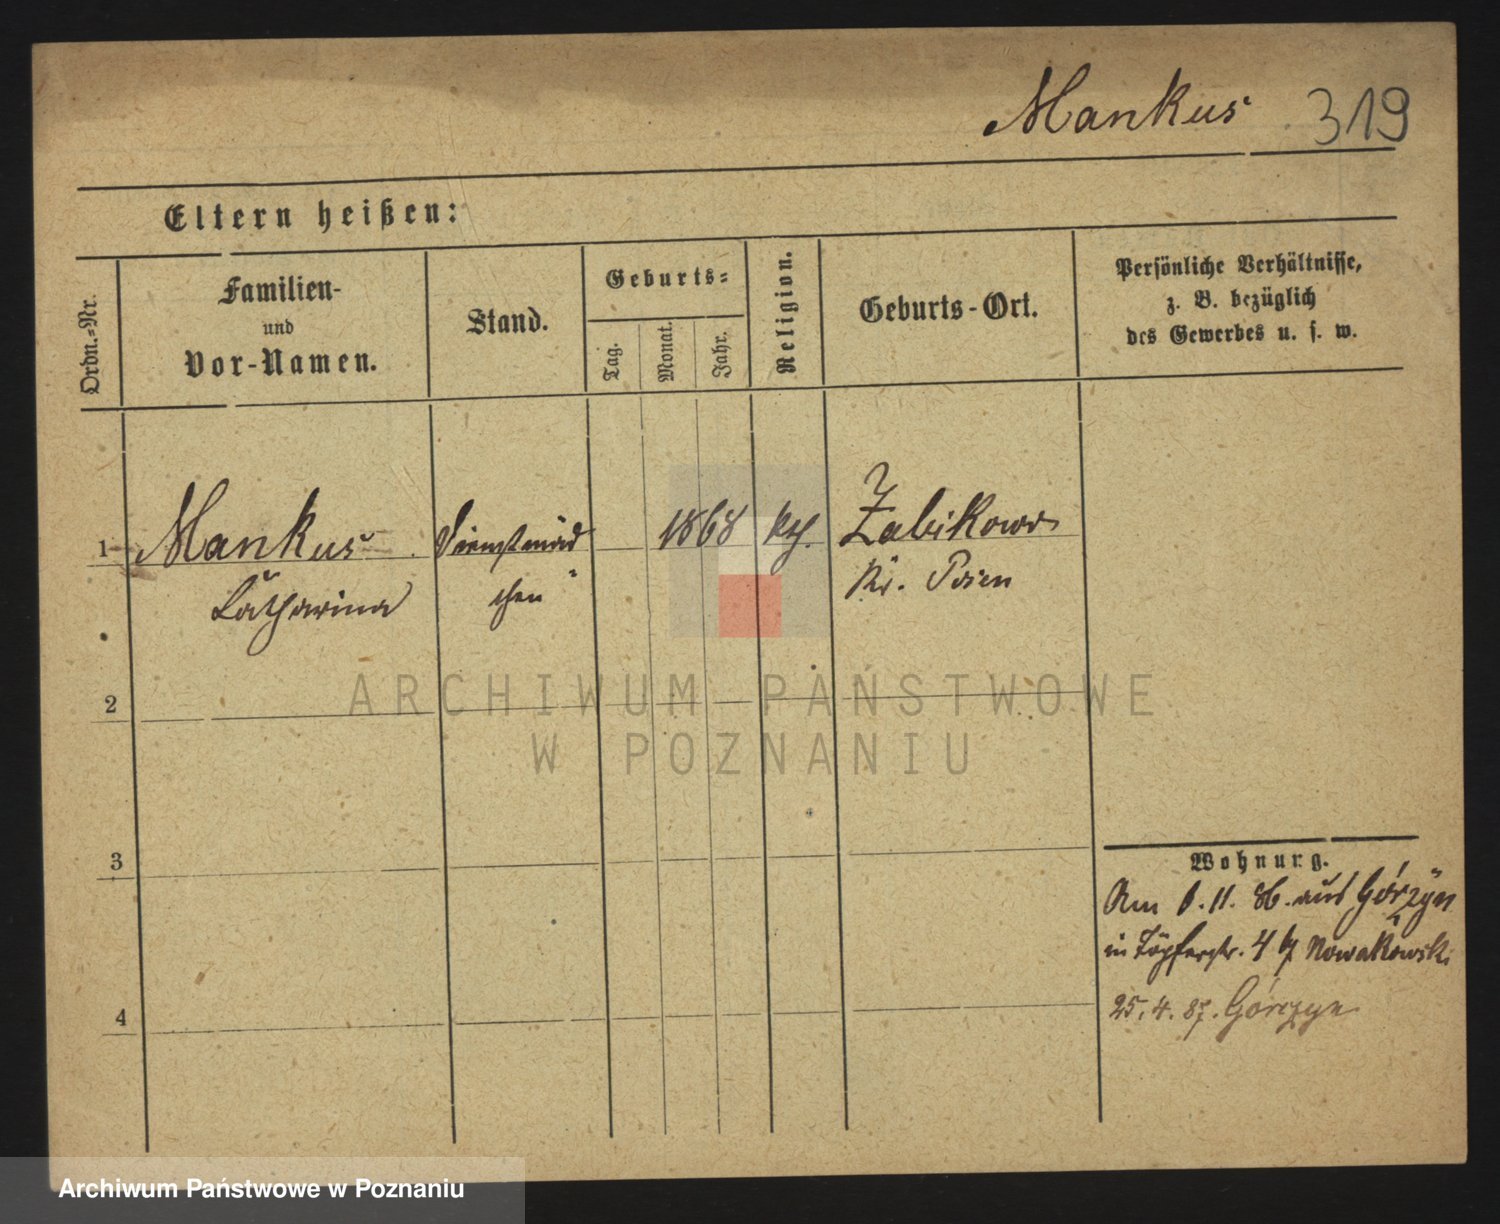 Mankus 319
Eltern heißen:
Ordn.-Nr.
Familien-
und
Vor-Namen.
Stand.
Geburts-
Tag.
Monat.
Jahr.
Religion.
Geburts-Ort.
Persönliche Verhältnisse,
z. B. bezüglich
des Gewerbes u. s. w.
1 Mankus Dienstmäd 1868 kth. Zabikowo
Catharina chen Kr. Posen
ARCHIWUM PAŃSTWOWE
W POZNANIU
2
3
4
Wohnung.
Am 11. 86. aus Górzyn
in Töpferstr. 4 b/ Nowakowski
25.4.87. Górczyn
Archiwum Państwowe w Poznaniu